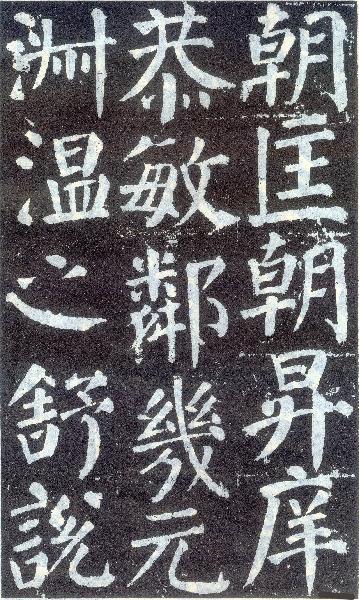 朝匡朝昇庠
恭敏鄰幾元
淵温之舒説